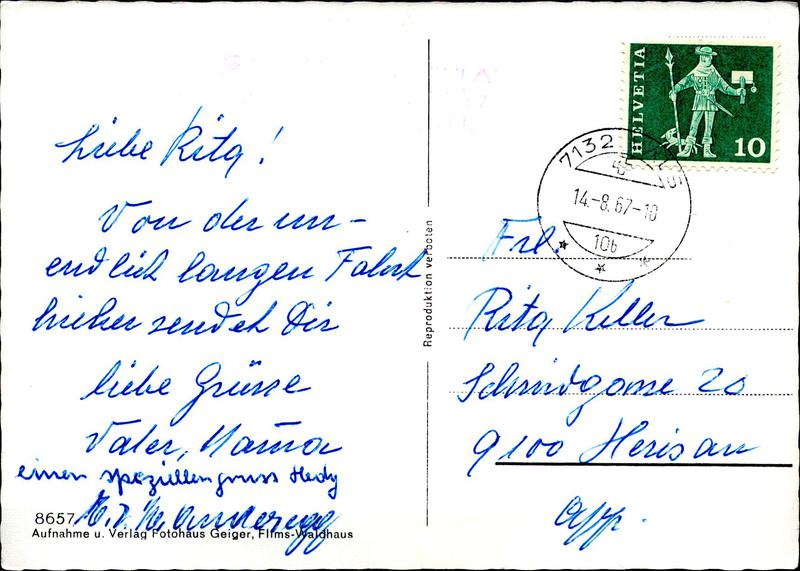 Liebe Rita!
Von der un-
endlich langen Fahrt
hieher sendet Dir
liebe Grüsse
Vater, Mama
einen speziellen gruss Hedy
Anderegg
8657
Aufnahme u. Verlag Fotohaus Geiger, Flims-Waldhaus
Reproduktion verboten
HELVETIA
10
7132
14.-8.67-10
10b
Frl.
Rita Keller
Schmidgasse 20
9100 Herisau
App.